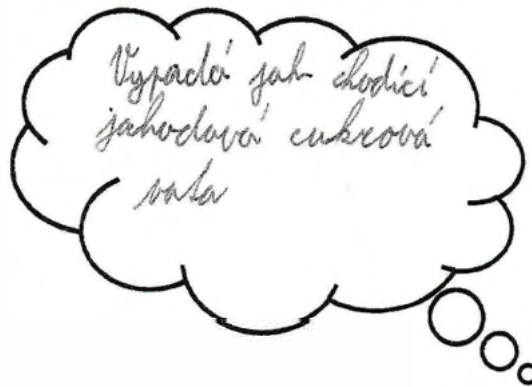 Vypadá jak chodící
jahodová cukrová
vata